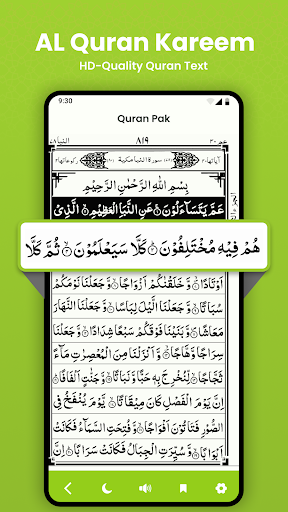 AL Quran Kareem
HD-Quality Quran Text
9:30
Quran Pak
النبا ٧٨
٨١٩
عم ٣٠
بِسْمِ اللّٰهِ الرَّحْمٰنِ الرَّحِيْمِ
عَمَّ يَتَسَآءَلُوْنَ عَنِ النَّبَاِ الْعَظِيْمِ الَّذِيْ
هُمْ فِيْهِ مُخْتَلِفُوْنَ كَلَّا سَيَعْلَمُوْنَ ثُمَّ كَلَّا
اَوْتَادًا وَّخَلَقْنٰكُمْ اَزْوَاجًا وَّجَعَلْنَا نَوْمَكُمْ
سُبَاتًا وَّجَعَلْنَا الَّيْلَ لِبَاسًا وَّجَعَلْنَا النَّهَارَ
مَعَاشًا وَّبَنَيْنَا فَوْقَكُمْ سَبْعًا شِدَادًا وَّجَعَلْنَا
سِرَاجًا وَّهَّاجًا وَّاَنْزَلْنَا مِنَ الْمُعْصِرٰتِ مَآءً
ثَجَّاجًا لِّنُخْرِجَ بِهٖ حَبًّا وَّنَبَاتًا وَّجَنّٰتٍ اَلْفَافًا
اِنَّ يَوْمَ الْفَصْلِ كَانَ مِيْقَاتًا يَّوْمَ يُنْفَخُ فِي
الصُّوْرِ فَتَاْتُوْنَ اَفْوَاجًا وَّفُتِحَتِ السَّمَآءُ فَكَانَتْ
اَبْوَابًا وَّسُيِّرَتِ الْجِبَالُ فَكَانَتْ سَرَابًا اِنَّ